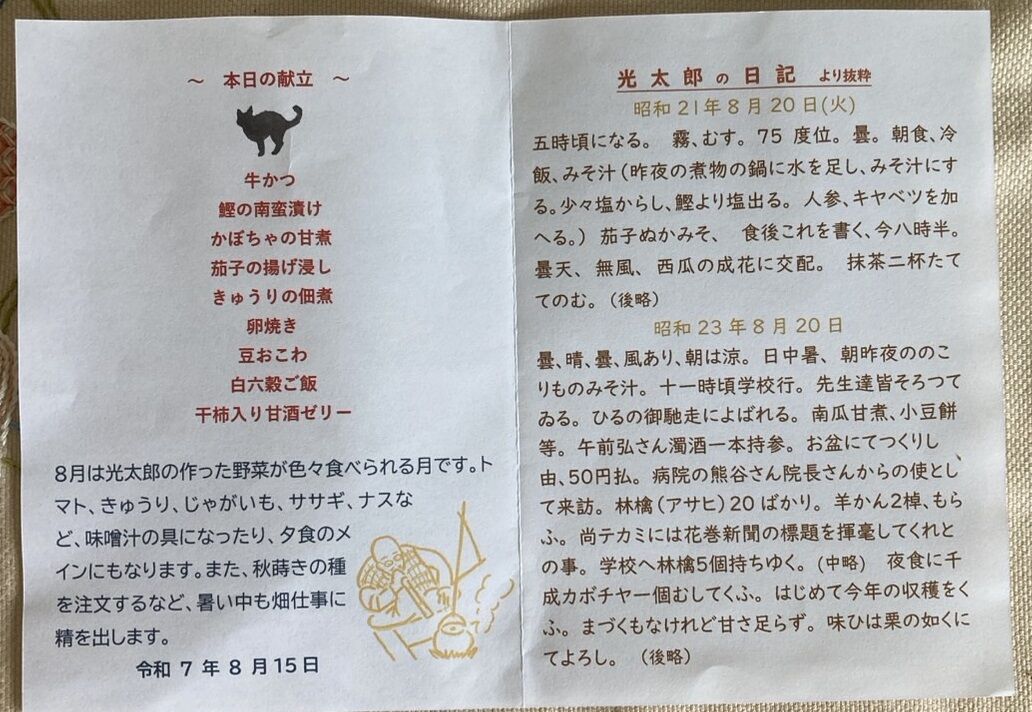 ～ 本日の献立 ～
牛かつ
鰹の南蛮漬け
かぼちゃの甘煮
茄子の揚げ浸し
きゅうりの佃煮
卵焼き
豆おこわ
白六穀ご飯
干柿入り甘酒ゼリー
8月は光太郎の作った野菜が色々食べられる月です。ト
マト、きゅうり、じゃがいも、ササギ、ナスな
ど、味噌汁の具になったり、夕食のメ
インにもなります。また、秋蒔きの種
を注文するなど、暑い中も畑仕事に
精を出します。
令和 7 年 8 月 15日
光太郎の日記 より抜粋
昭和 21年 8 月 20 日(火)
五時頃になる。 霧、むす。 75 度位。 曇。 朝食、冷
飯、みそ汁（昨夜の煮物の鍋に水を足し、みそ汁にす
る。少々塩からし、鰹より塩出る。 人参、キヤベツを加
へる。） 茄子ぬかみそ、 食後これを書く、今八時半。
曇天、 無風、 西瓜の成花に交配。 抹茶二杯たて
てのむ。（後略）
昭和 23 年 8 月 20 日
曇、晴、曇、風あり、朝は涼。 日中暑、 朝昨夜ののこ
りものみそ汁。 十一時頃学校行。 先生達皆そろつて
ゐる。 ひるの御馳走によばれる。 南瓜甘煮、小豆餅
等。 午前弘さん濁酒一本持参。 お盆にてつくりし
由、50円払。 病院の熊谷さん院長さんからの使とし
て来訪。 林檎（アサヒ）20 ばかり。 羊かん2棹、もら
ふ。 尚テカミには花巻新聞の標題を揮毫してくれと
の事。 学校へ林檎5個持ちゆく。（中略） 夜食に千
成カボチヤ一個むしてくふ。 はじめて今年の収穫をく
ふ。 まづくもなけれど甘さ足らず。 味ひは栗の如くに
てよろし。 （後略）